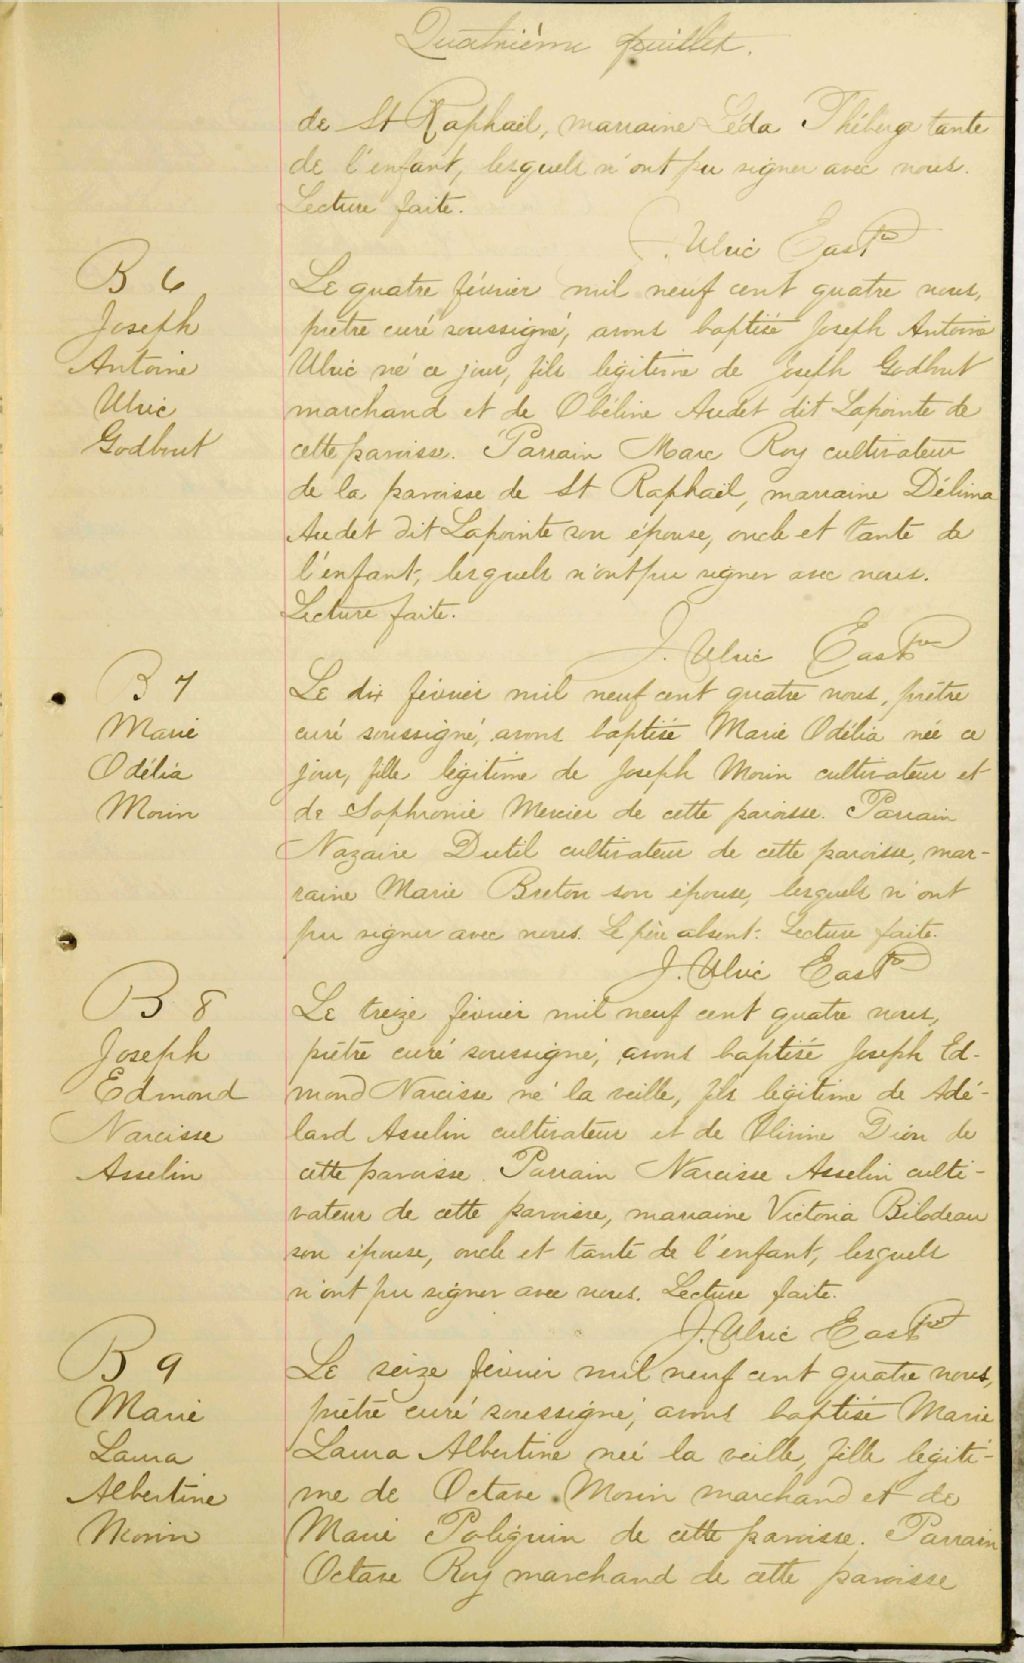 Quatrième feuillet.
de St Raphaël, marraine Léda Théberge tante
de l'enfant, lesquels n'ont pu signer avec nous.
Lecture faite.
J. Ulric East ptre
B 6
Joseph
Antoine
Ulric
Godbout
Le quatre février mil neuf cent quatre nous,
prêtre curé soussigné, avons baptisé Joseph Antoine
Ulric né ce jour, fils légitime de Joseph Godbout
marchand et de Obéline Audet dit Lapointe de
cette paroisse. Parrain Marc Roy cultivateur
de la paroisse de St Raphaël, marraine Délima
Audet dit Lapointe son épouse, oncle et tante de
l'enfant, lesquels n'ont pu signer avec nous.
Lecture faite.
J. Ulric East ptre
B 7
Marie
Odélia
Morin
Le dix février mil neuf cent quatre nous, prêtre
curé soussigné, avons baptisé Marie Odélia née ce
jour, fille légitime de Joseph Morin cultivateur et
de Sophronie Mercier de cette paroisse. Parrain
Nazaire Dutil cultivateur de cette paroisse, mar-
raine Marie Breton son épouse, lesquels n'ont
pu signer avec nous. Le père absent. Lecture faite.
J. Ulric East ptre
B 8
Joseph
Edmond
Narcisse
Asselin
Le treize février mil neuf cent quatre nous,
prêtre curé soussigné, avons baptisé Joseph Ed-
mond Narcisse né la veille, fils légitime de Adé-
lard Asselin cultivateur et de Dion de
cette paroisse. Parrain Narcisse Asselin culti-
vateur de cette paroisse, marraine Victoria Bilodeau
son épouse, oncle et tante de l'enfant, lesquels
n'ont pu signer avec nous. Lecture faite.
J. Ulric East ptre
B 9
Marie
Laura
Albertine
Morin
Le seize février mil neuf cent quatre nous,
prêtre curé soussigné, avons baptisé Marie
Laura Albertine née la veille, fille légiti-
me de Octave Morin marchand et de
Marie Poliquin de cette paroisse. Parrain
Octave Roy marchand de cette paroisse